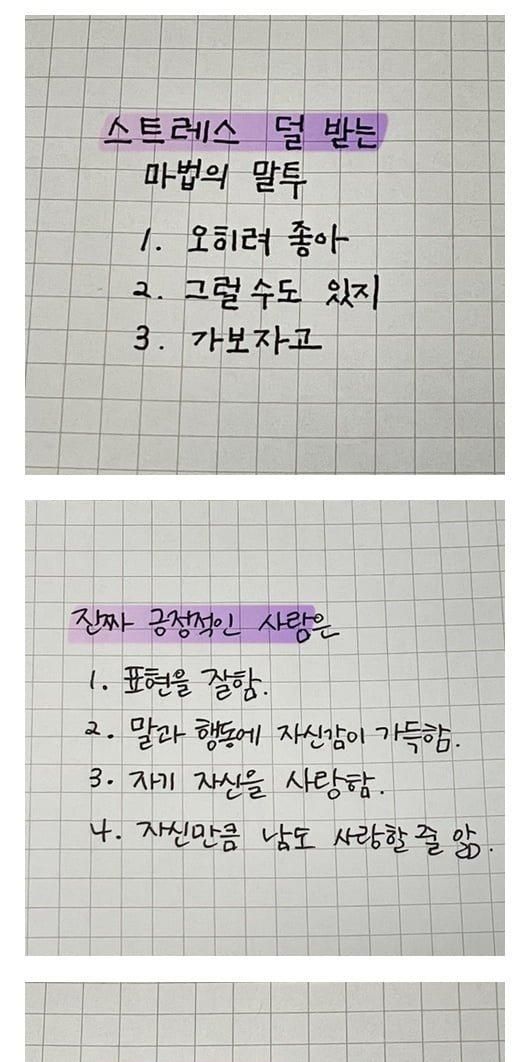 스트레스 덜 받는
마법의 말투
1. 오히려 좋아
2. 그럴 수도 있지
3. 가보자고
진짜 긍정적인 사람은
1. 표현을 잘함.
2. 말과 행동에 자신감이 가득함.
3. 자기 자신을 사랑함.
4. 자신만큼 남도 사랑할 줄 앎.